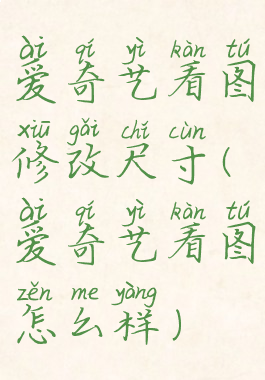 ài qí yì kàn tú
爱奇艺看图
xiū gǎi chǐ cùn
修改尺寸(
ài qí yì kàn tú
爱奇艺看图
zěn me yàng
怎么样)